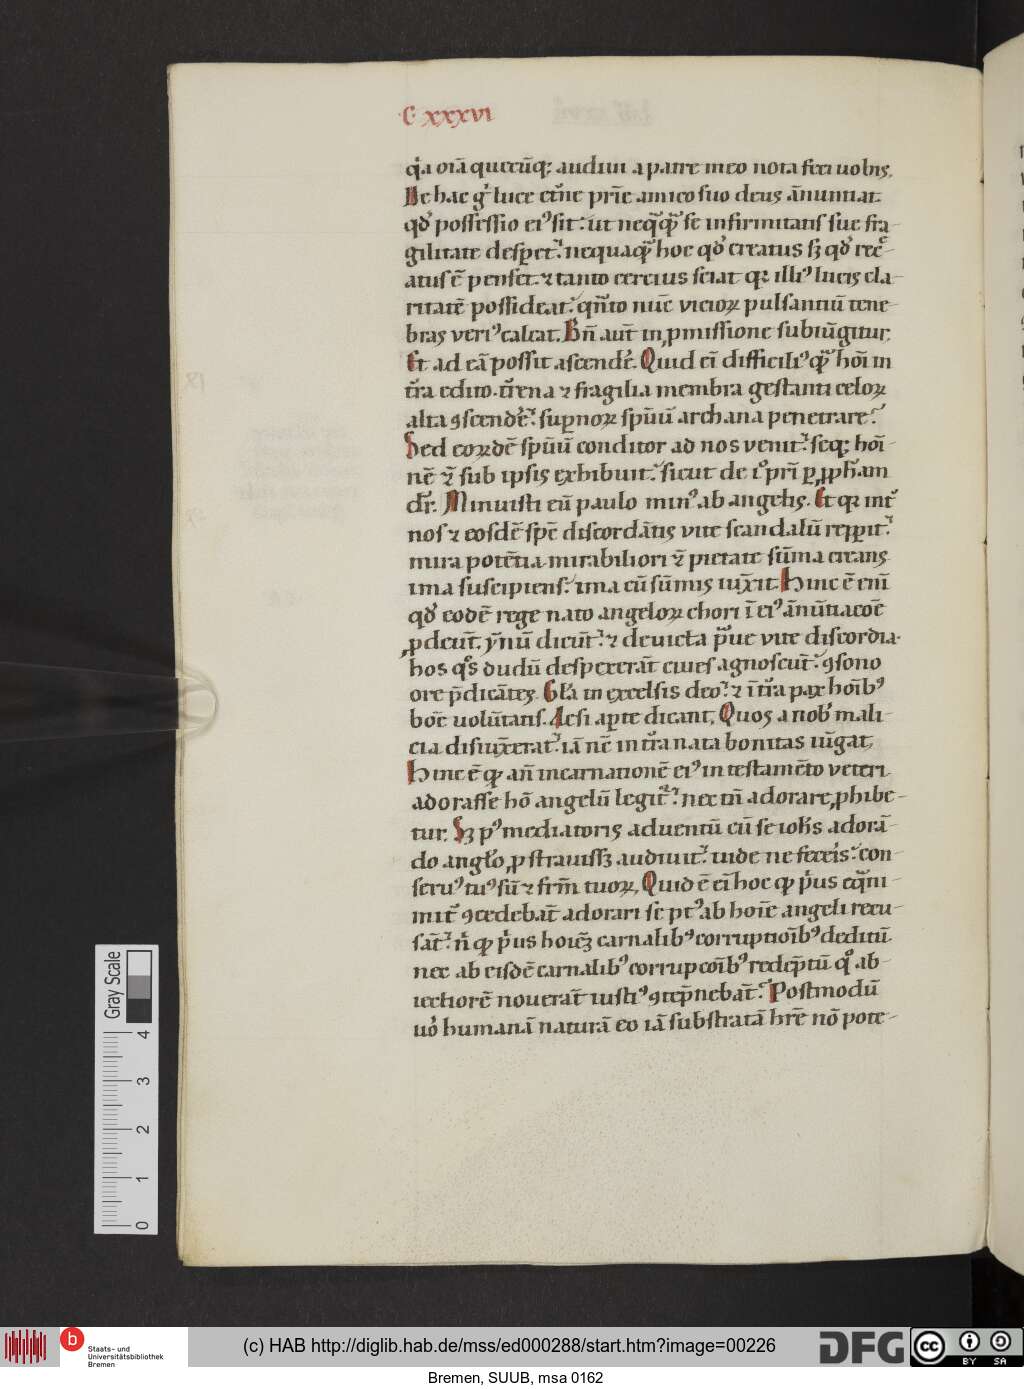 C xxxvi
q̇a om̄a quecūq; audiui a patre meo nota feci uobis.
De hac g̊ luce et̄ne pr̄ie amico suo deus ānuntiat
qd̕ possessio ei᾽ sit. ut neq̄q̄ se infirmitatis sue fra
gilitate despet. nequaq̄ hoc qd̕ creatus sꝫ qd̕ rec̄
atus ē penset. ⁊ tanto cercius sciat qꝛ illi᾽ lucis cla-
ritatē possideat. qn̄to nūc vicioꝝ pulsantiū tene-
bras veri᾽ calcat. Bn̄ aut̄ in ꝓmissione subiūgitur.
Et ad eā possit ascendē. Quid ei̅ difficili᾽ q̄ hoi̅ in
t̄ra edito. t̄rena ⁊ fragilia membra gestanti celoꝝ
alta ꝯscendē. supnoꝝ spūū archana penetrare?
Sed eoꝝdē spūū conditor ad nos venit. seq; hoi̅-
nē ⁊̄ sub ipsis exhibuit. sicut de i᾽ pri̅ ꝑ ꝓph̄am
dr̄. Minuisti eū paulo min᾽ ab angelis. Et qꝛ int̄
nos ⁊ eosdē spc̄ discordātis vite scandalū repꝑit.
mira potētia mirabiliori ⁊̄ pietate sūma creans
ima suscipiens. ima cū sūmis iūxit. Hinc ē eni̅
qd̕ eodē rege nato angeloꝝ chori i̅ ei᾽ ānūtiacōe
ꝓdeūt. ymnū dicūt. ⁊ deuicta p̄ue vite discordia.
hos qͦs dudū despexerāt ciues agnoscūt. ꝯsono
ore p̄dicātes. Gl̄a in excelsis deo. ⁊ i̅ t̄ra pax hoi̅b᾽
bōe uolūtatis. Acsi apte dicant. Quos a nob̄ mali
cia disiūxerat. iā nc̄ in t̄ra nata bonitas iūgat.
Hinc ē qꝫ an̄ incarnationē ei᾽ in testamēto veteri
adorasse hō angelū legit̄. nec tn̄ adorare ꝓhibe-
tur. Sꝫ p᾽ mediatoris aduentū cū se ioh̄s adorā-
do angl̄o ꝓstrauissꝫ audiuit. uide ne feceris. con
seru᾽ tu᾽ sū ⁊ fr̄m tuoꝝ. Quid ē ei̅ hoc qꝫ p̄us
mit̄ ꝯcedebāt adorari se pt᾽ ab hoi̅e angeli recu-
sāt. n̄ qꝫ p̄us hoi̅eꝫ carnalib᾽ corruptioi̅b᾽ deditū.
nec ab eisdē carnalib᾽ corrupcōib᾽ redēptū qͦ ab-
iectiorē nouerāt iusti᾽ ꝯtēpnebāt. Postmodū
uo̅ humanā naturā eo iā substratā hr̄e nō pote-
Gray Scale
0 1 2 3 4
b
Staats- und
Universitätsbibliothek
Bremen
(c) HAB http://diglib.hab.de/mss/ed000288/start.htm?image=00226
DFG
cc
BY SA
Bremen, SUUB, msa 0162